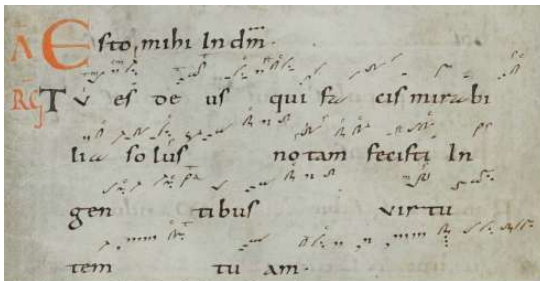 A Esto mihi In dm̅.
RG Tu es de us qui fa cis mirabi
lia solus notam fecisti In
gen tibus virtu
tem tu am.